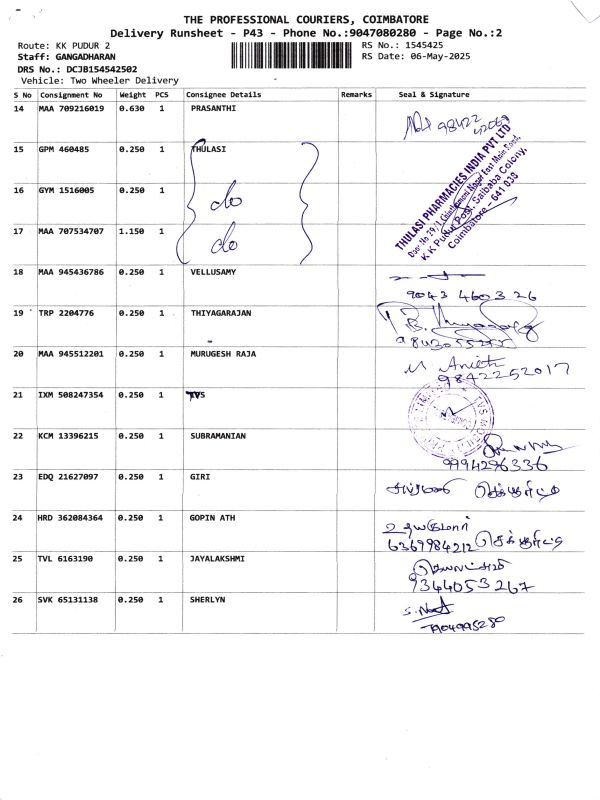 THE PROFESSIONAL COURIERS, COIMBATORE
Delivery Runsheet - P43 - Phone No.:9047080280 - Page No.:2
Route: KK PUDUR 2 RS No.: 1545425
Staff: GANGADHARAN RS Date: 06-May-2025
DRS No.: DCJB154542502
Vehicle: Two Wheeler Delivery
S No Consignment No Weight PCS Consignee Details Remarks Seal & Signature
14 MAA 709216019 0.630 1 PRASANTHI
15 GPM 460485 0.250 1 THULASI
THULASI PHARMACIES INDIA PVT LTD
K K Pudur Post, Saibaba Colony,
Coimbatore - 641 038
16 GYM 1516005 0.250 1 do
17 MAA 707534707 1.150 1 do
18 MAA 945436786 0.250 1 VELLUSAMY
9043 4603 26
19 TRP 2204776 0.250 1 THIYAGARAJAN
20 MAA 945512201 0.250 1 MURUGESH RAJA
9842252017
21 IXM 508247354 0.250 1 TVS
22 KCM 13396215 0.250 1 SUBRAMANIAN
9994296336
23 EDQ 21627097 0.250 1 GIRI
24 HRD 362084364 0.250 1 GOPIN ATH
6369984212
25 TVL 6163190 0.250 1 JAYALAKSHMI
9344053267
26 SVK 65131138 0.250 1 SHERLYN
7904995280